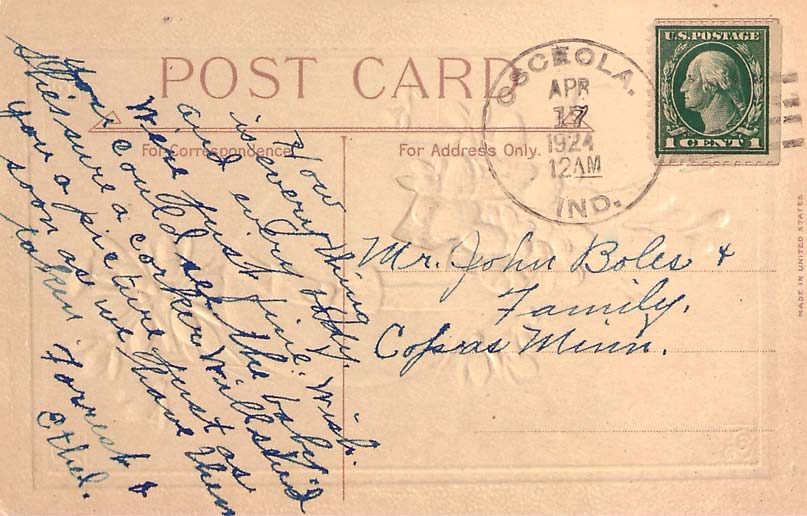 POST CARD
For Correspondence
For Address Only.
OSCEOLA.
APR
17
1924
12 AM
IND.
U.S. POSTAGE
1 CENT 1
MADE IN UNITED STATES
Mr. John Boles &
Family.
Copas Minn.
How
is everything
and every body.
We're just fine. Wish
you could see the baby.
He's sure a corker. Will send
you a picture just as
soon as we have them
taken. Forrest &
Ethel.